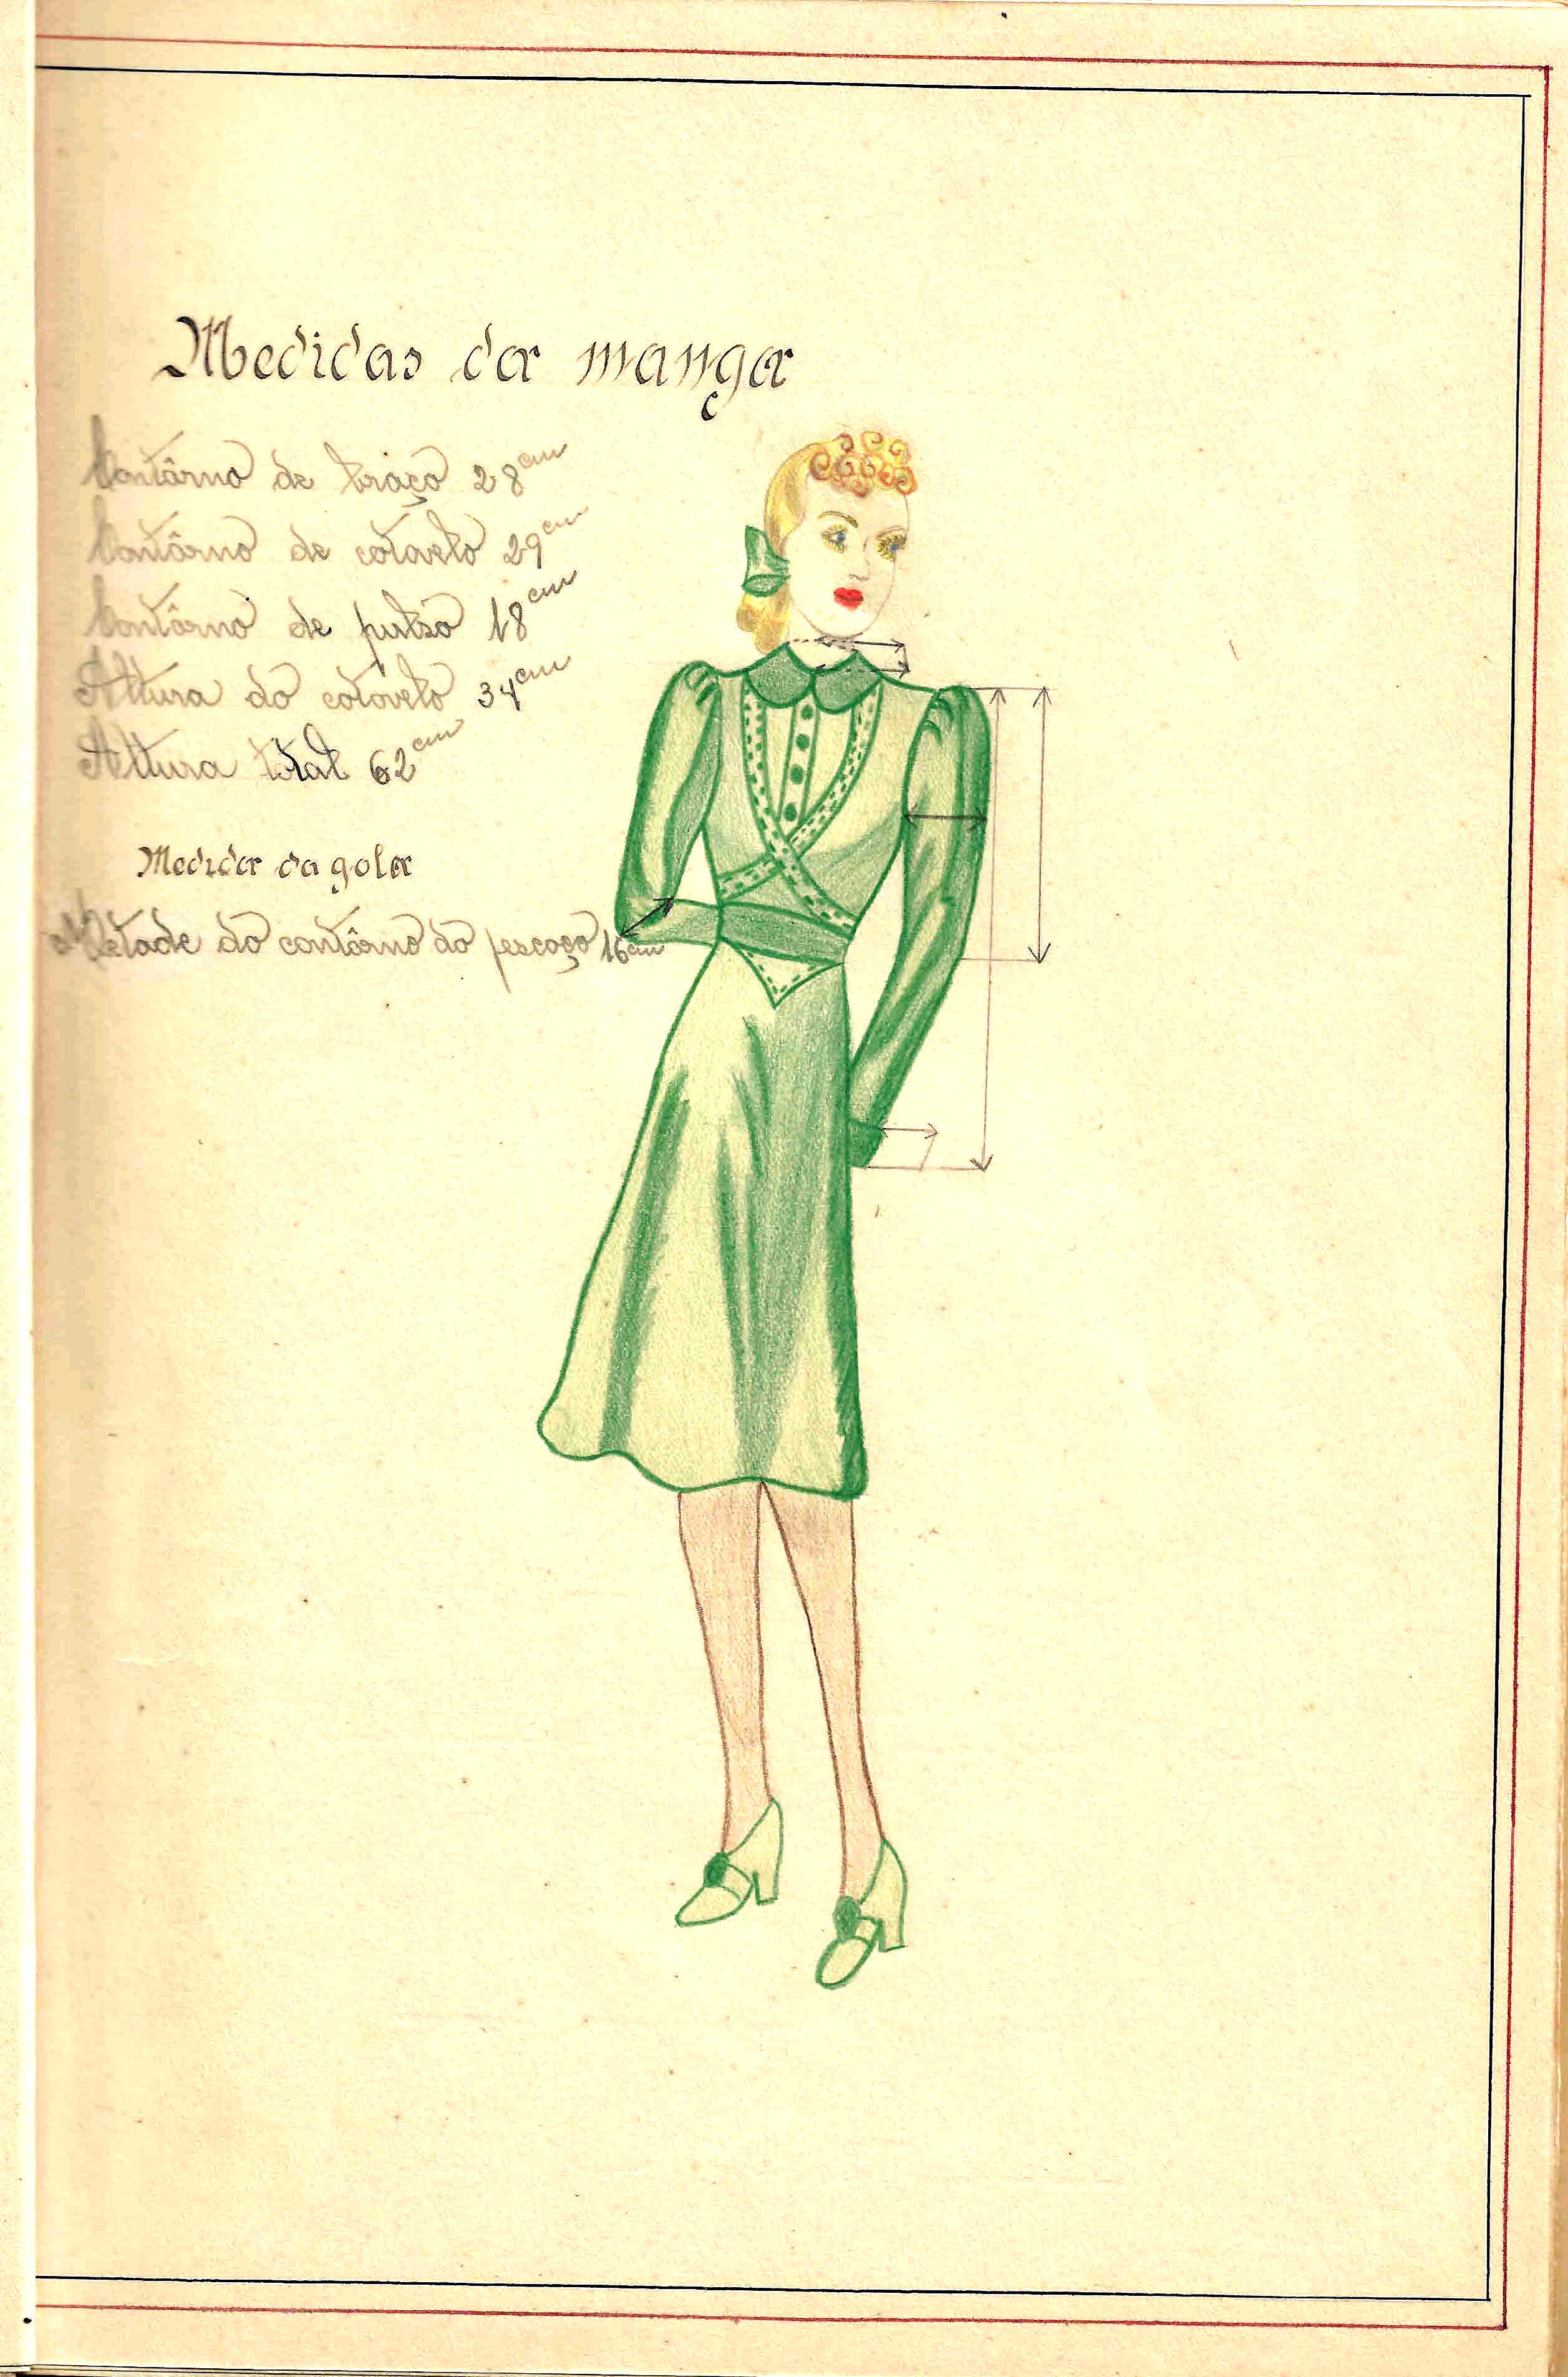 Medidas da manga
Contôrno de braço 28 cm
Contôrno de cotovelo 29 cm
Contôrno de pulso 18 cm
Altura do cotovelo 34 cm
Altura total 62 cm
Medida da gola
Metade do contôrno do pescoço 16 cm